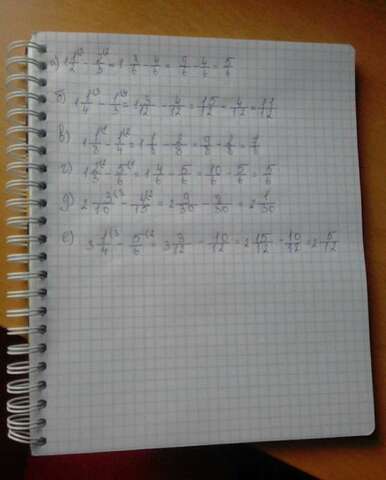 а) 1 1/2 - 2/3 = 1 3/6 - 4/6 = 9/6 - 4/6 = 5/6
б) 1 1/4 - 1/3 = 1 3/12 - 4/12 = 15/12 - 4/12 = 11/12
в) 1 1/8 - 1/4 = 1 1/8 - 2/8 = 9/8 - 2/8 = 7/8
г) 1 2/3 - 5/6 = 1 4/6 - 5/6 = 10/6 - 5/6 = 5/6
д) 2 3/10 - 4/15 = 2 9/30 - 8/30 = 2 1/30
е) 3 1/4 - 5/6 = 3 3/12 - 10/12 = 2 15/12 - 10/12 = 2 5/12